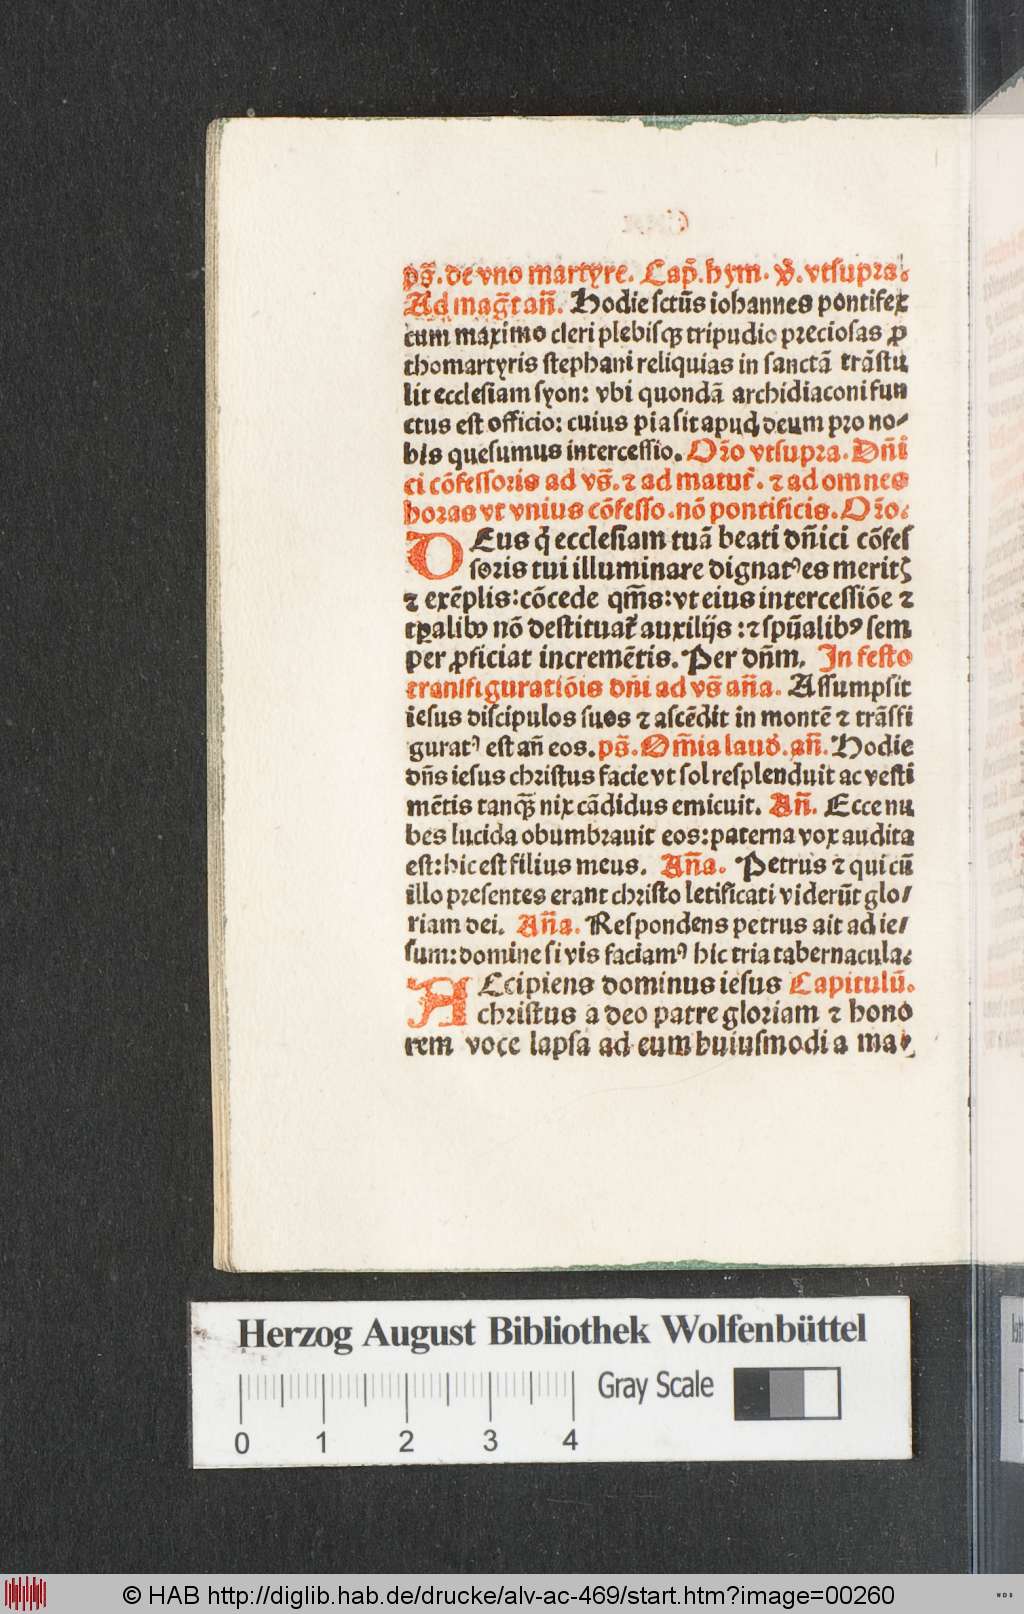 ps̄. de vno martyre. Cap̄. hym. v̄. vtsupra.
Ad mag̅t an̄. Hodie sctūs iohannes pontifex
cum maximo cleri plebisqꝫ tripudio preciosas ꝓ
thomartyris stephani reliquias in sanctā trāstu
lit ecclesiam syon: vbi quondā archidiaconi fun
ctus est officio: cuius pia sit apud deum pro no-
bis quesumus intercessio. Or̄o vtsupra. Dn̄i
ci cōfessoris ad vs̄. ⁊ ad matut̄. ⁊ ad omnes
horas vt vnius cōfesso. nō pontificis. Or̄o.
DEus q̄ ecclesiam tuā beati dn̄ici cōfes
soris tui illuminare dignatꝰ es meritꝭ
⁊ exēplis: cōcede qm̄s: vt eius intercessiōe ⁊
tꝑalibꝰ nō destituat̄ auxilijs: ⁊ spūalibꝰ sem
per ꝓficiat incremētis. Per dn̄m. In festo
transfiguratiōis dn̄i ad vs̄ an̄a. Assumpsit
iesus discipulos suos ⁊ ascēdit in montē ⁊ trāsfi
guratꝰ est an̄ eos. ps̄. Om̄ia laud̄. an̄. Hodie
dn̄s iesus christus facie vt sol resplenduit ac vesti
mētis tanqꝫ̄ nix cādidus emicuit. An̄. Ecce nu
bes lucida obumbrauit eos: paterna vox audita
est: hic est filius meus. An̄a. Petrus ⁊ qui cū
illo presentes erant christo letificati viderūt glo/
riam dei. An̄a. Respondens petrus ait ad ie/
sum: domine si vis faciamꝰ hic tria tabernacula.
ACcipiens dominus iesus Capitulū.
christus a deo patre gloriam ⁊ hono
rem voce lapsa ad eum huiusmodi a ma-
Herzog August Bibliothek Wolfenbüttel
Gray Scale
0 1 2 3 4
© HAB http://diglib.hab.de/drucke/alv-ac-469/start.htm?image=00260